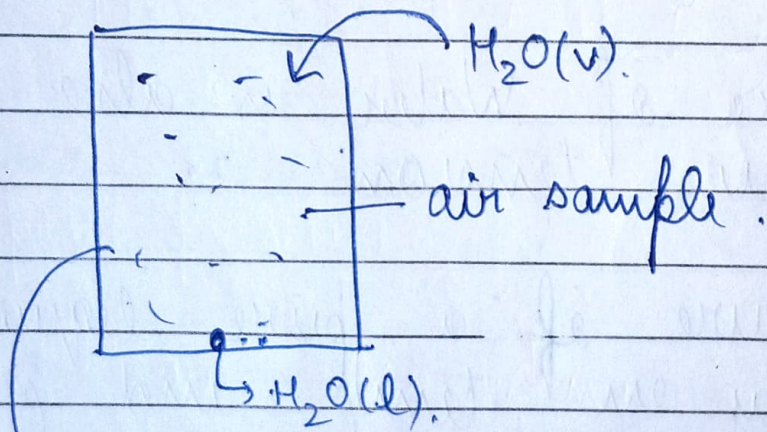 H₂O(v).
air sample.
H₂O(l).